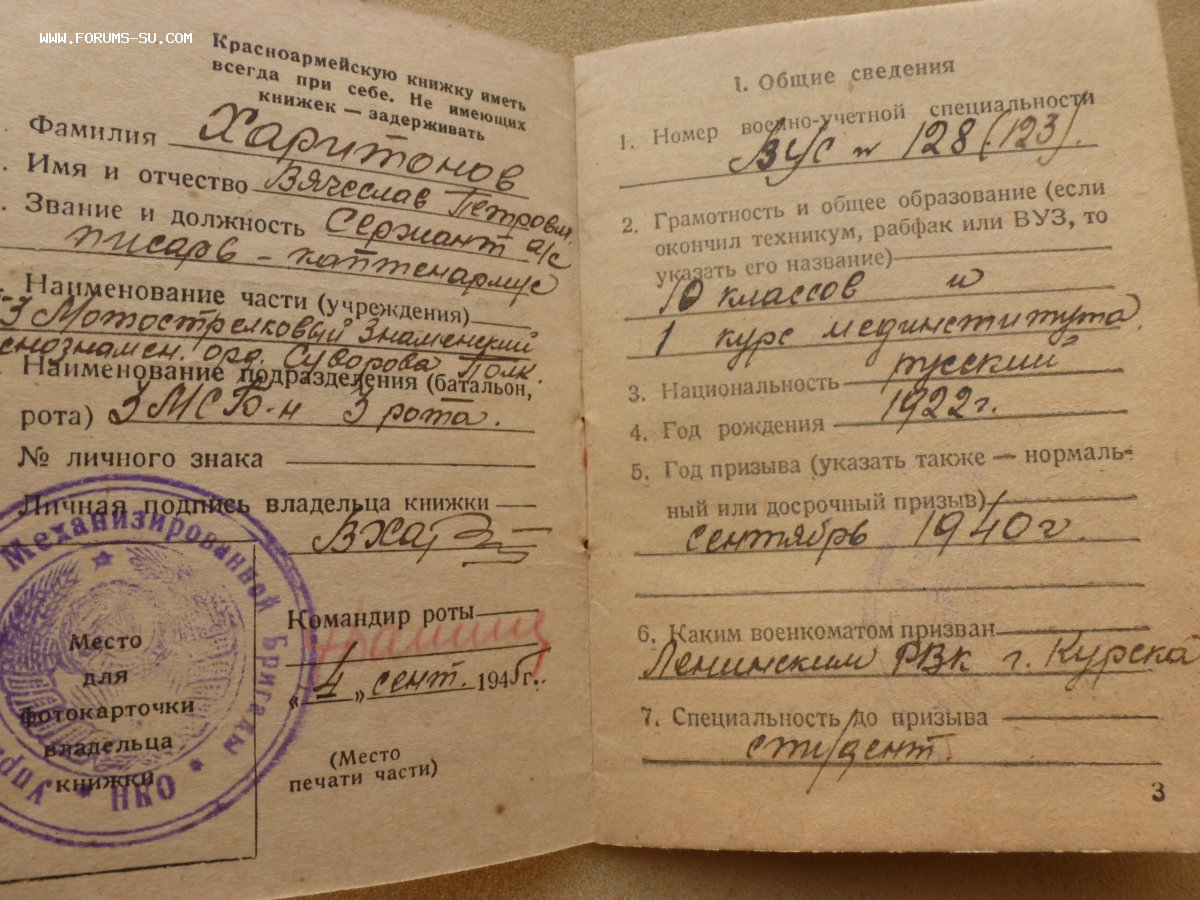 www.forums-su.com
Красноармейскую книжку иметь
всегда при себе. Не имеющих
книжек — задерживать
Фамилия Харитонов
. Имя и отчество Вячеслав Петрович.
. Звание и должность Сержант а/с
писарь - каптенармус
Наименование части (учреждения)
3 Мотострелковый Знаменский
снознамен. орд. Суворова Полк.
Наименование подразделения (батальон,
рота) 3 МСБ-н 3 рота.
№ личного знака
Личная подпись владельца книжки
ВХар
Механизированной Бригады * НКО * Упр
Место
для
фотокарточки
владельца
книжки
Командир роты
«4» сент. 1945г.
(Место
печати части)
I. Общие сведения
1. Номер военно-учетной специальности
ВУС № 128 (123).
2. Грамотность и общее образование (если
окончил техникум, рабфак или ВУЗ, то
указать его название)
10 классов и
1 курс мединститута.
3. Национальность русский
4. Год рождения 1922 г.
5. Год призыва (указать также — нормаль-
ный или досрочный призыв)
сентябрь 1940 г.
6. Каким военкоматом призван
Ленинским РВК г. Курска
7. Специальность до призыва
студент.
3